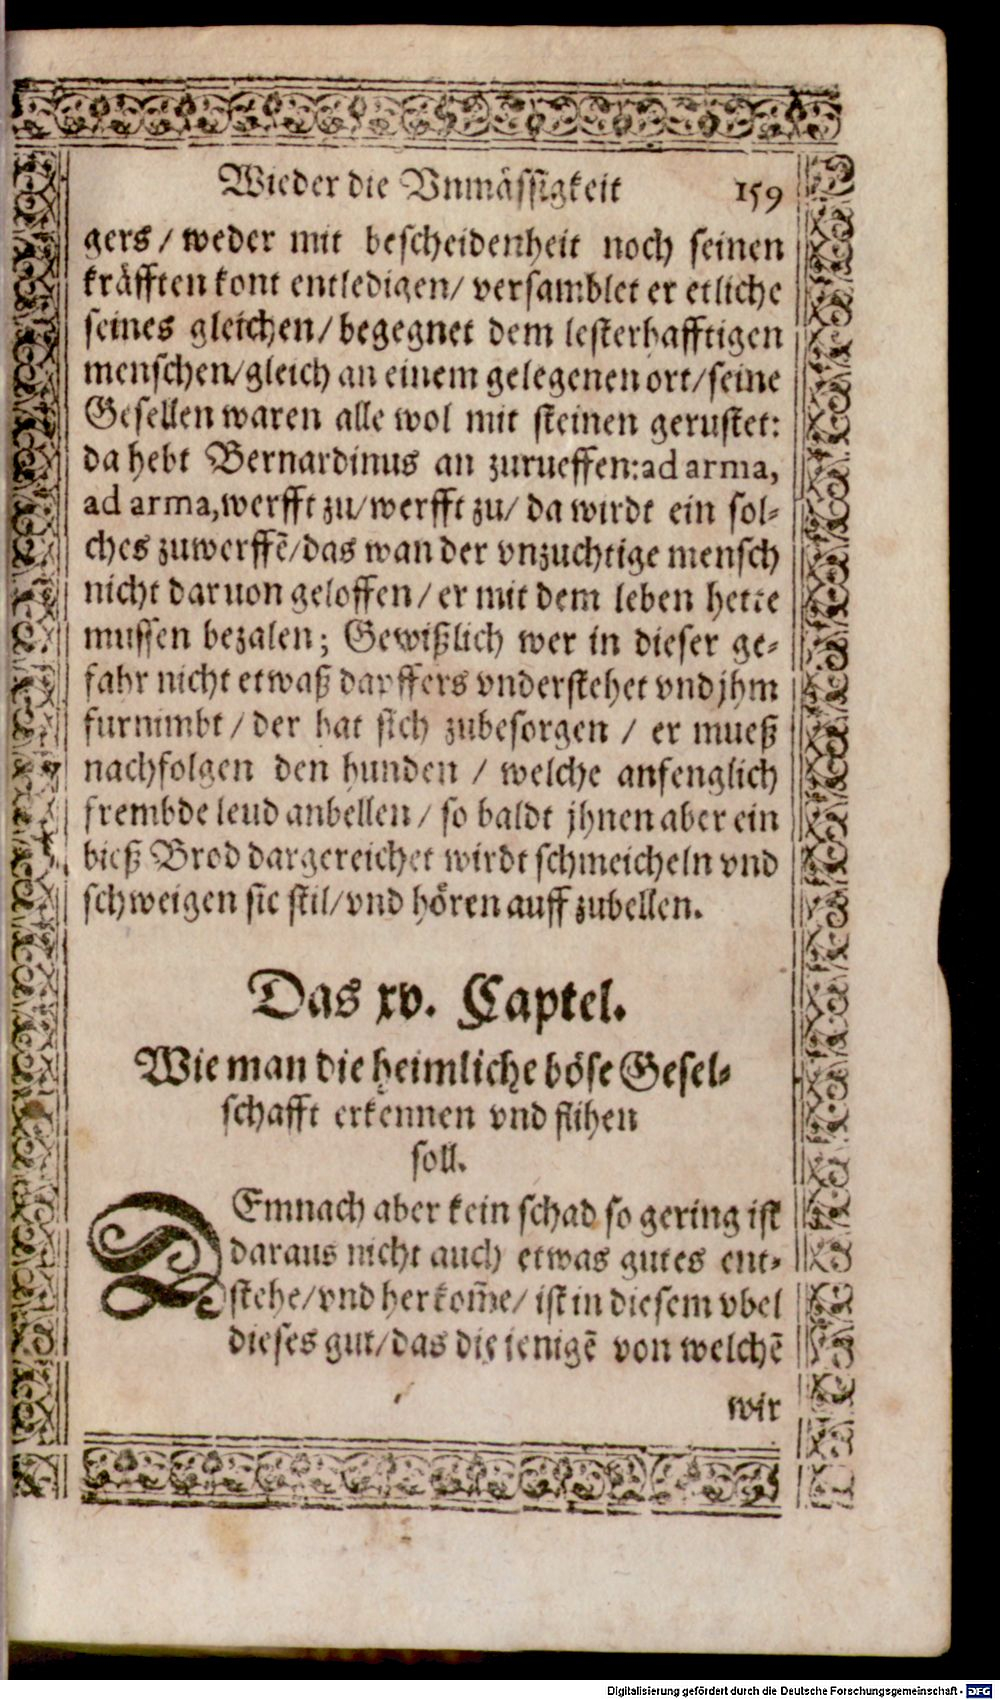 Wieder die Vnmässigkeit 159
gers / weder mit bescheidenheit noch seinen
kräfften kont entledigen/ versamblet er etliche
seines gleichen/ begegnet dem lesterhafftigen
menschen/gleich an einem gelegenen ort/seine
Gesellen waren alle wol mit steinen gerustet:
da hebt Bernardinus an zurueffen:ad arma,
ad arma,werfft zu/werfft zu/ da wirdt ein sol-
ches zuwerffē/das wan der vnzuchtige mensch
nicht daruon geloffen/ er mit dem leben hette
mussen bezalen; Gewißlich wer in dieser ge-
fahr nicht etwaß dapffers vnderstehet vnd jhm
furnimbt / der hat sich zubesorgen / er mueß
nachfolgen den hunden / welche anfenglich
frembde leud anbellen/ so baldt jhnen aber ein
bieß Brod dargereichet wirdt schmeicheln vnd
schweigen sie stil/vnd hören auff zubellen.
Das xv. Captel.
Wie man die heimliche böse Gesel-
schafft erkennen vnd flihen
soll.
DEmnach aber kein schad so gering ist
daraus nicht auch etwas gutes ent-
stehe/vnd herkom̄e/ ist in diesem vbel
dieses gut/das die jenigē von welchē
wir
Digitalisierung gefördert durch die Deutsche Forschungsgemeinschaft - DFG